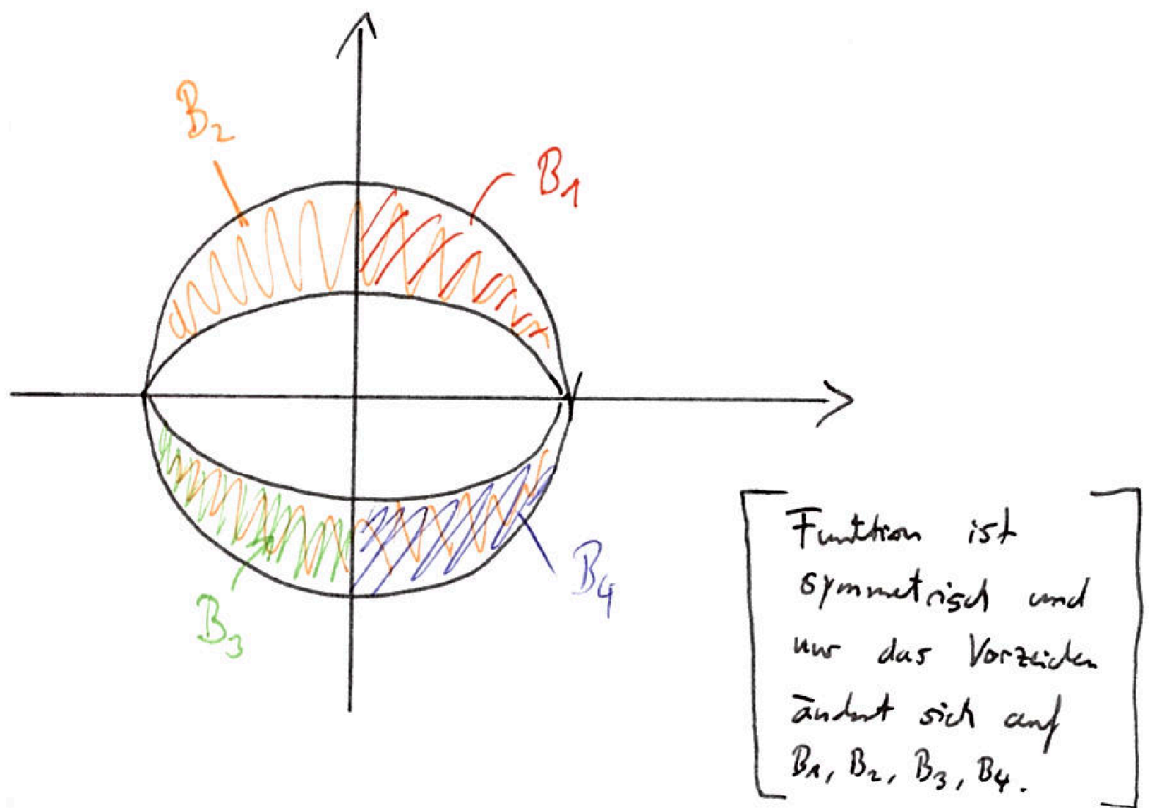 B₂
B₁
B₃
B₄
Funktion ist
symmetrisch und
nur das Vorzeichen
ändert sich auf
B₁, B₂, B₃, B₄.